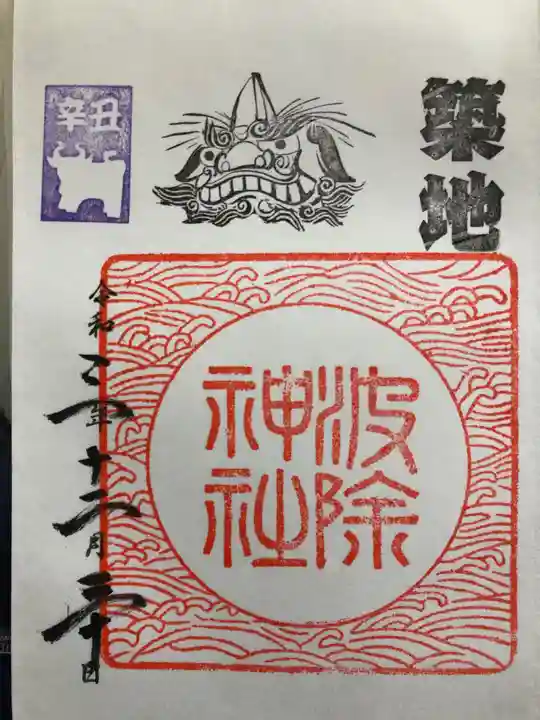 築地
辛丑
波除
神社
令和三年十二月三十日